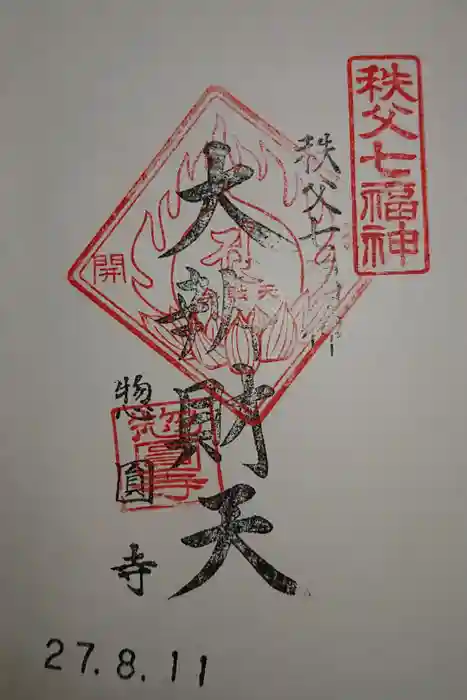 秩父七福神
秩父七福神
大弁財天
開
天
惣圓寺
惣圓寺
27.8.11